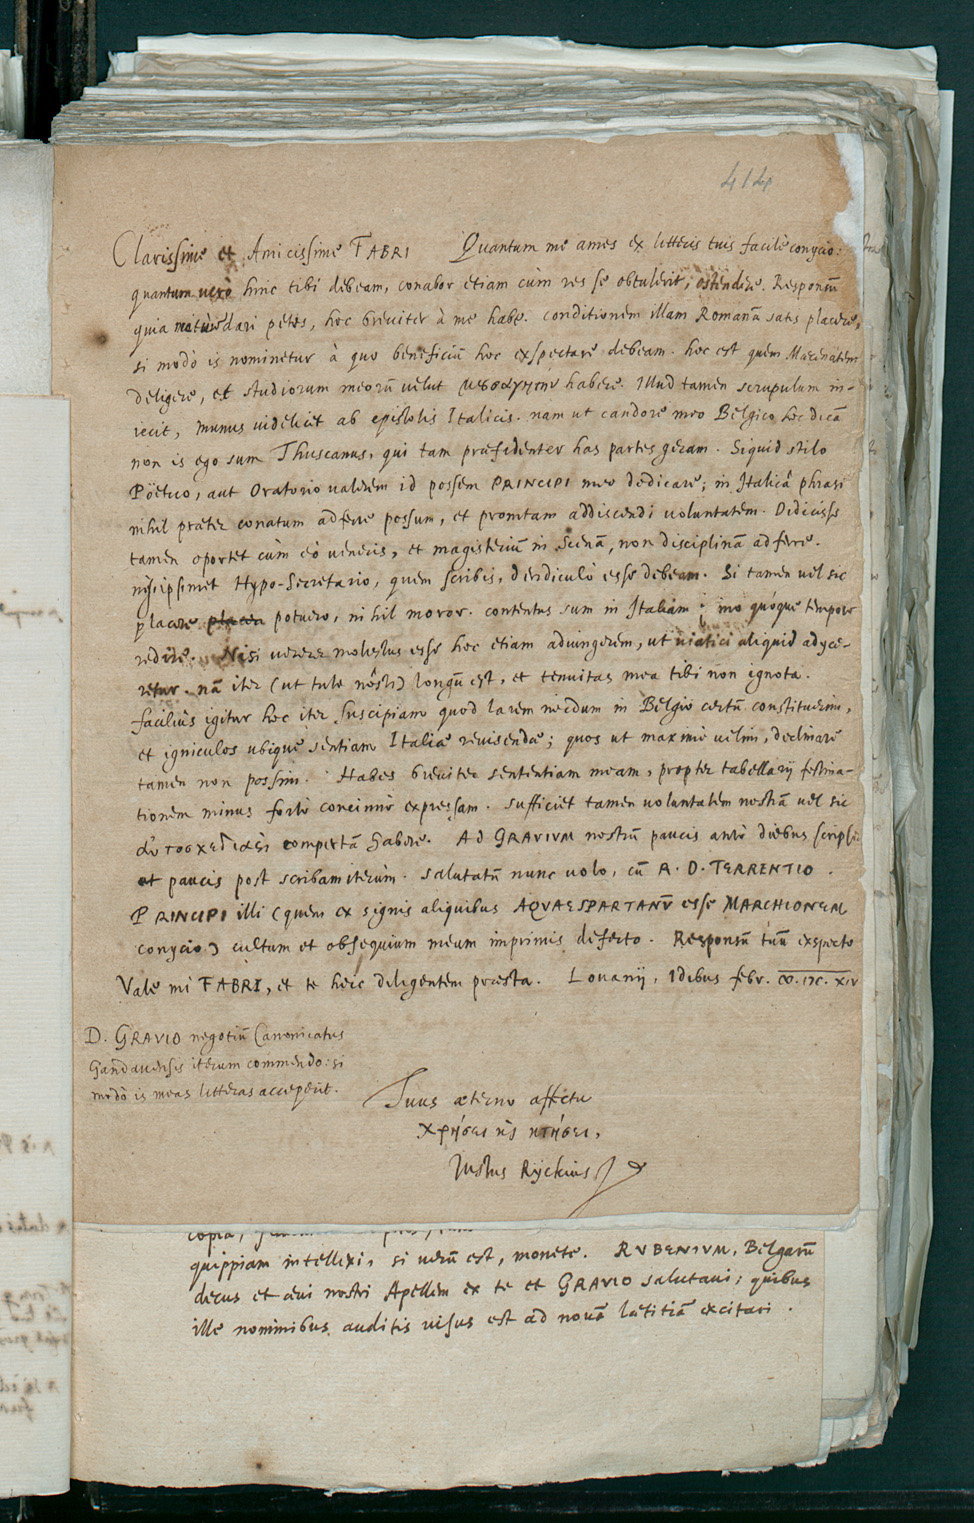 414
Clarissime et Amicissime FABRI Quantum me ames ex litteris tuis facile conijcio:
quantum verò hinc tibi debeam, conabor etiam cùm res se obtulerit, ostendere. Responsũ
quia maturè dari petis, hoc breviter à me habe. conditionem illam Romanã satis placere,
si modò is nominetur à quo beneficiũ hoc exspectare debeam. hoc est quem Mæcenatem
deligere, et studiorum meorũ velut habere. Illud tamen scrupulum in-
iecit, munus videlicet ab epistolis Italicis. nam ut candore meo Belgico hoc dicã
non is ego sum Thuscanus, qui tam præfidenter has partes geram. Siquid stilo
Pöetico, aut Oratorio valerem id possem PRINCIPI meo dedicare; in Italicâ phrasi
nihil præter conatum adferre possum, et promtam addiscendi voluntatem. Didicisse
tamen oportet cùm eò veneris, et magisteriũ in Scenã, non disciplinã adferre.
nisi ipsimet Hypo-Secretario, quem scribis, deridiculo esse debeam. Si tamen vel sic
placere potuero, nihil moror. contentus sum in Italiam; imo quóque tempore
redire. Nisi vererer molestus esse hoc etiam adiungerem, ut viatici aliquid adijce-
retur. nã iter (ut tute nôsti) longũ est, et tenuitas mea tibi non ignota.
faciliùs igitur hoc iter suscipiam quod larem necdum in Belgio certũ constituerim,
et igniculos ubique sentiam Italiæ revisendæ; quos ut maximè velim, declinare
tamen non possim. Habes breviter sententiam meam, propter tabellarij festina-
tionem minus fortè concinnè expressam. sufficiet tamen voluntatem nostrã vel sic
compertã habere. Ad GRAVIVM nostrũ paucis antè diebus scripsi
et paucis post scribam iterùm. salutatũ nunc volo, cũ R. D. TERRENTIO.
PRINCIPI illi (quem ex signis aliquibus AQVAESPARTANŨ esse MARCHIONEM
conijcio) cultum et obsequium meum imprimis defero. Responsũ tuũ exspecto
Vale mi FABRI, et te heic diligentem præsta. Lovanij, Idibus febr. ↀ. IↃC. XIV
D. GRAVIO negotiũ Canonicatus
Gandavensis iterum commendo: si
modò is meas litteras acceperit.
Tuus æterno affectu
χρήσει κ̀ς κτήσει,
Justus Ryckius
copia,
quippiam intellexi, si verũ est, monete. RVBENIVM, Belgarũ
decus et ævi nostri Apellem ex te et GRAVIO salutavi; quibus
ille nominibus auditis visus est ad novã lætitiã excitari.